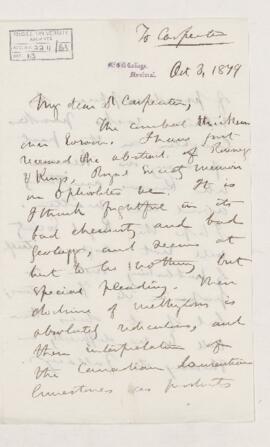 To Carpenter
McGill College,
Montreal.
Oct 3, 1879
My dear Dr Carpenter,
The combat thickens
over Eozoon. I have just
received the abstract of Rowney
& King's Royal Society memoir
on ophiolites &c. It is
I think frightful in its
bad chemistry and bad
Geology, and seems at
best to be nothing but
special pleading. Their
doctrine of methylosis is
absolutely ridiculous, and
their interpretation of
the Canadian Laurentian
limestones as products